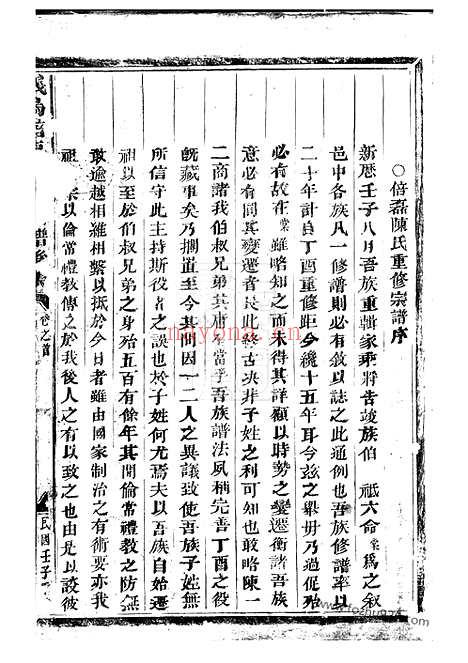 〇倍磊陳氏重修宗譜序
新曆壬子八月吾族重輯家乘將告竣族伯 祗六命棠為之敘
邑中各族凡一修譜則必有敘以誌之此通例也吾族修譜率以
二十年計自丁酉重修距今纔十五年耳今茲之舉毋乃過促殆
必有故在棠雖略知之而未得其詳顧以時勢之變遷衡諸吾族
意必有同其變遷者長此終古決非子姓之利可知也敢略陳一
二商諸我伯叔兄弟其庸有當乎吾族譜法夙稱完善丁酉之役
既蕆事矣乃擱置至今其間因一二人之異議致使吾族子姓無
所信守此主持斯役者之誤也於子姓何尤焉夫以吾族自始遷
祖以至於伯叔兄弟之身殆五百有餘年其間倫常禮教之防無
敢逾越相維相繫以抵於今日者雖由國家制治之有術要亦我
祖宗以倫常禮教傳之於我後人之有以致之也由是以談彼
義烏倍 譜序 卷之首 民國壬子
nayong.com
www.fozhu974.com